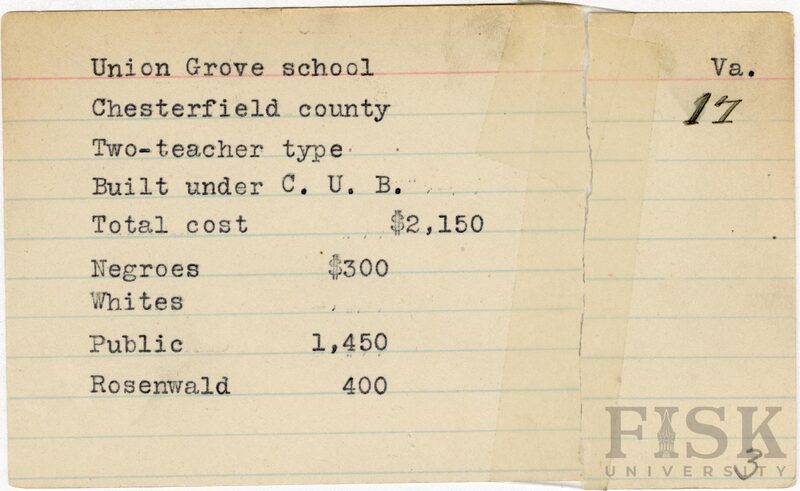 Union Grove school Va.
Chesterfield county 17
Two-teacher type
Built under C. U. B.
Total cost $2,150
Negroes $300
Whites ....
Public 1,450
Rosenwald 400
FISK
UNIVERSITY
3